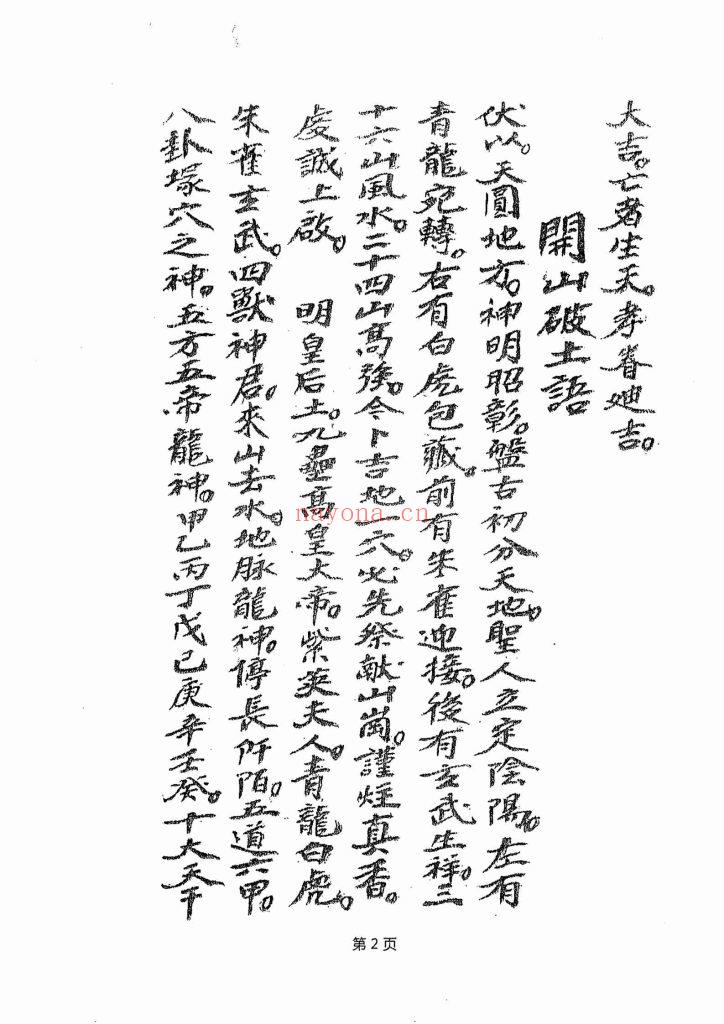 大吉。亡者生天。孝眷廸吉。
開山破土語
伏以。天圓地方。神明昭彰。盤古初分天地。聖人立定陰陽。左有
青龍宛轉。右有白虎包藏。前有朱雀迎接。後有玄武生祥。三
十六山風水。二十四山高強。今卜吉地一穴。必先祭献山崗。謹炷真香。
虔誠上啟。 明皇后土。九壘高皇大帝。紫英夫人。青龍白虎。
朱雀玄武。四獸神君。來山去水。地脉龍神。停長阡陌。五道六甲。
八卦塚穴之神。五方五帝龍神。甲乙丙丁戊己庚辛壬癸。十大天干
nayona.cn
第 2 页